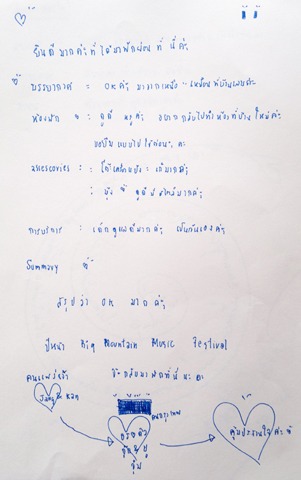 ยินดีมากค่ะที่ได้มาพักผ่อนที่นี่ค่ะ
บรรยากาศ = OK ค่ะ มาจากเหนือ เหมือนที่บ้านเลยค่ะ
ห้องพัก = ดูดี หรูค่ะ อยากกลับไปทำห้องที่บ้านใหม่ค่ะ
ขอยืมแบบไปใช้ก่อนนะคะ
assessories : = เก๋มากค่ะ
: มุ้ง ดูดีมีสไตล์มากค่ะ
การบริการ : เด็กดูแลดีมากค่ะ เป็นกันเองค่ะ
Summary
สรุปว่า OK มากค่ะ
ปีหน้า Big Mountain Music Festival
จะกลับมาพักที่นี่นะคะ
คนแพร่เจ้า
คนกรุงเทพ
คุ้มประทับใจค่ะ